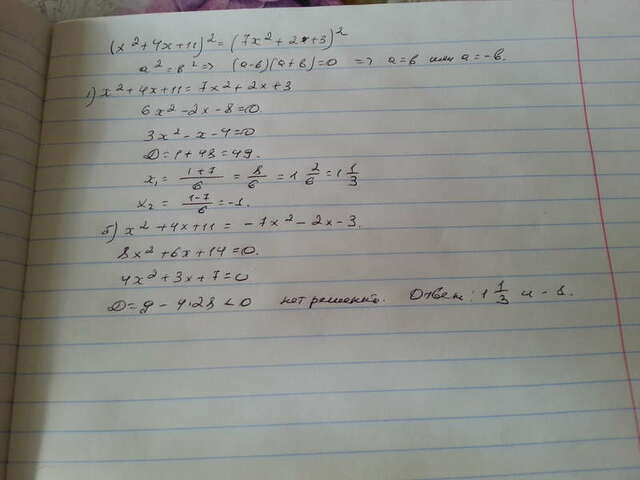 (x²+4x+11)² = (7x²+2x+3)²
a² = в² => (a-в)(a+в)=0 => a=в или a=-в.
1) x²+4x+11 = 7x²+2x+3
6x²-2x-8=0
3x²-x-4=0
D=1+48=49.
x₁ = (1+7)/6 = 8/6 = 1 2/6 = 1 1/3
x₂ = (1-7)/6 = -1.
б) x²+4x+11 = -7x²-2x-3.
8x²+6x+14=0.
4x²+3x+7=0
D=9-4·28<0 нет решений. Ответ: 1 1/3 и -1.